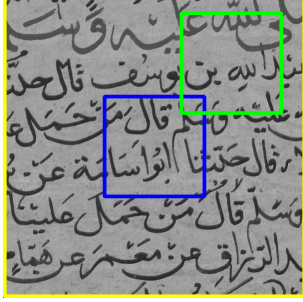 الله عليه وس
الله بن يوسف قال حدثنا
عليه وسلم قال من حمل
قال حدثنا ابو اسامة عن
وسلم قال من حمل علينا
الرزاق عن معمر عن همام